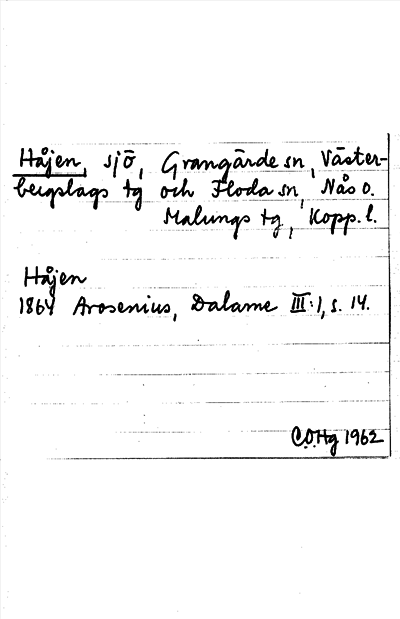 Håjen, sjö, Grangärde sn, Väster-
bergslags tg och Floda sn, Nås o.
Malungs tg, Kopp. l.
Håjen
1864 Arosenius, Dalarne III:1, s. 14.
C.O.Hg 1962